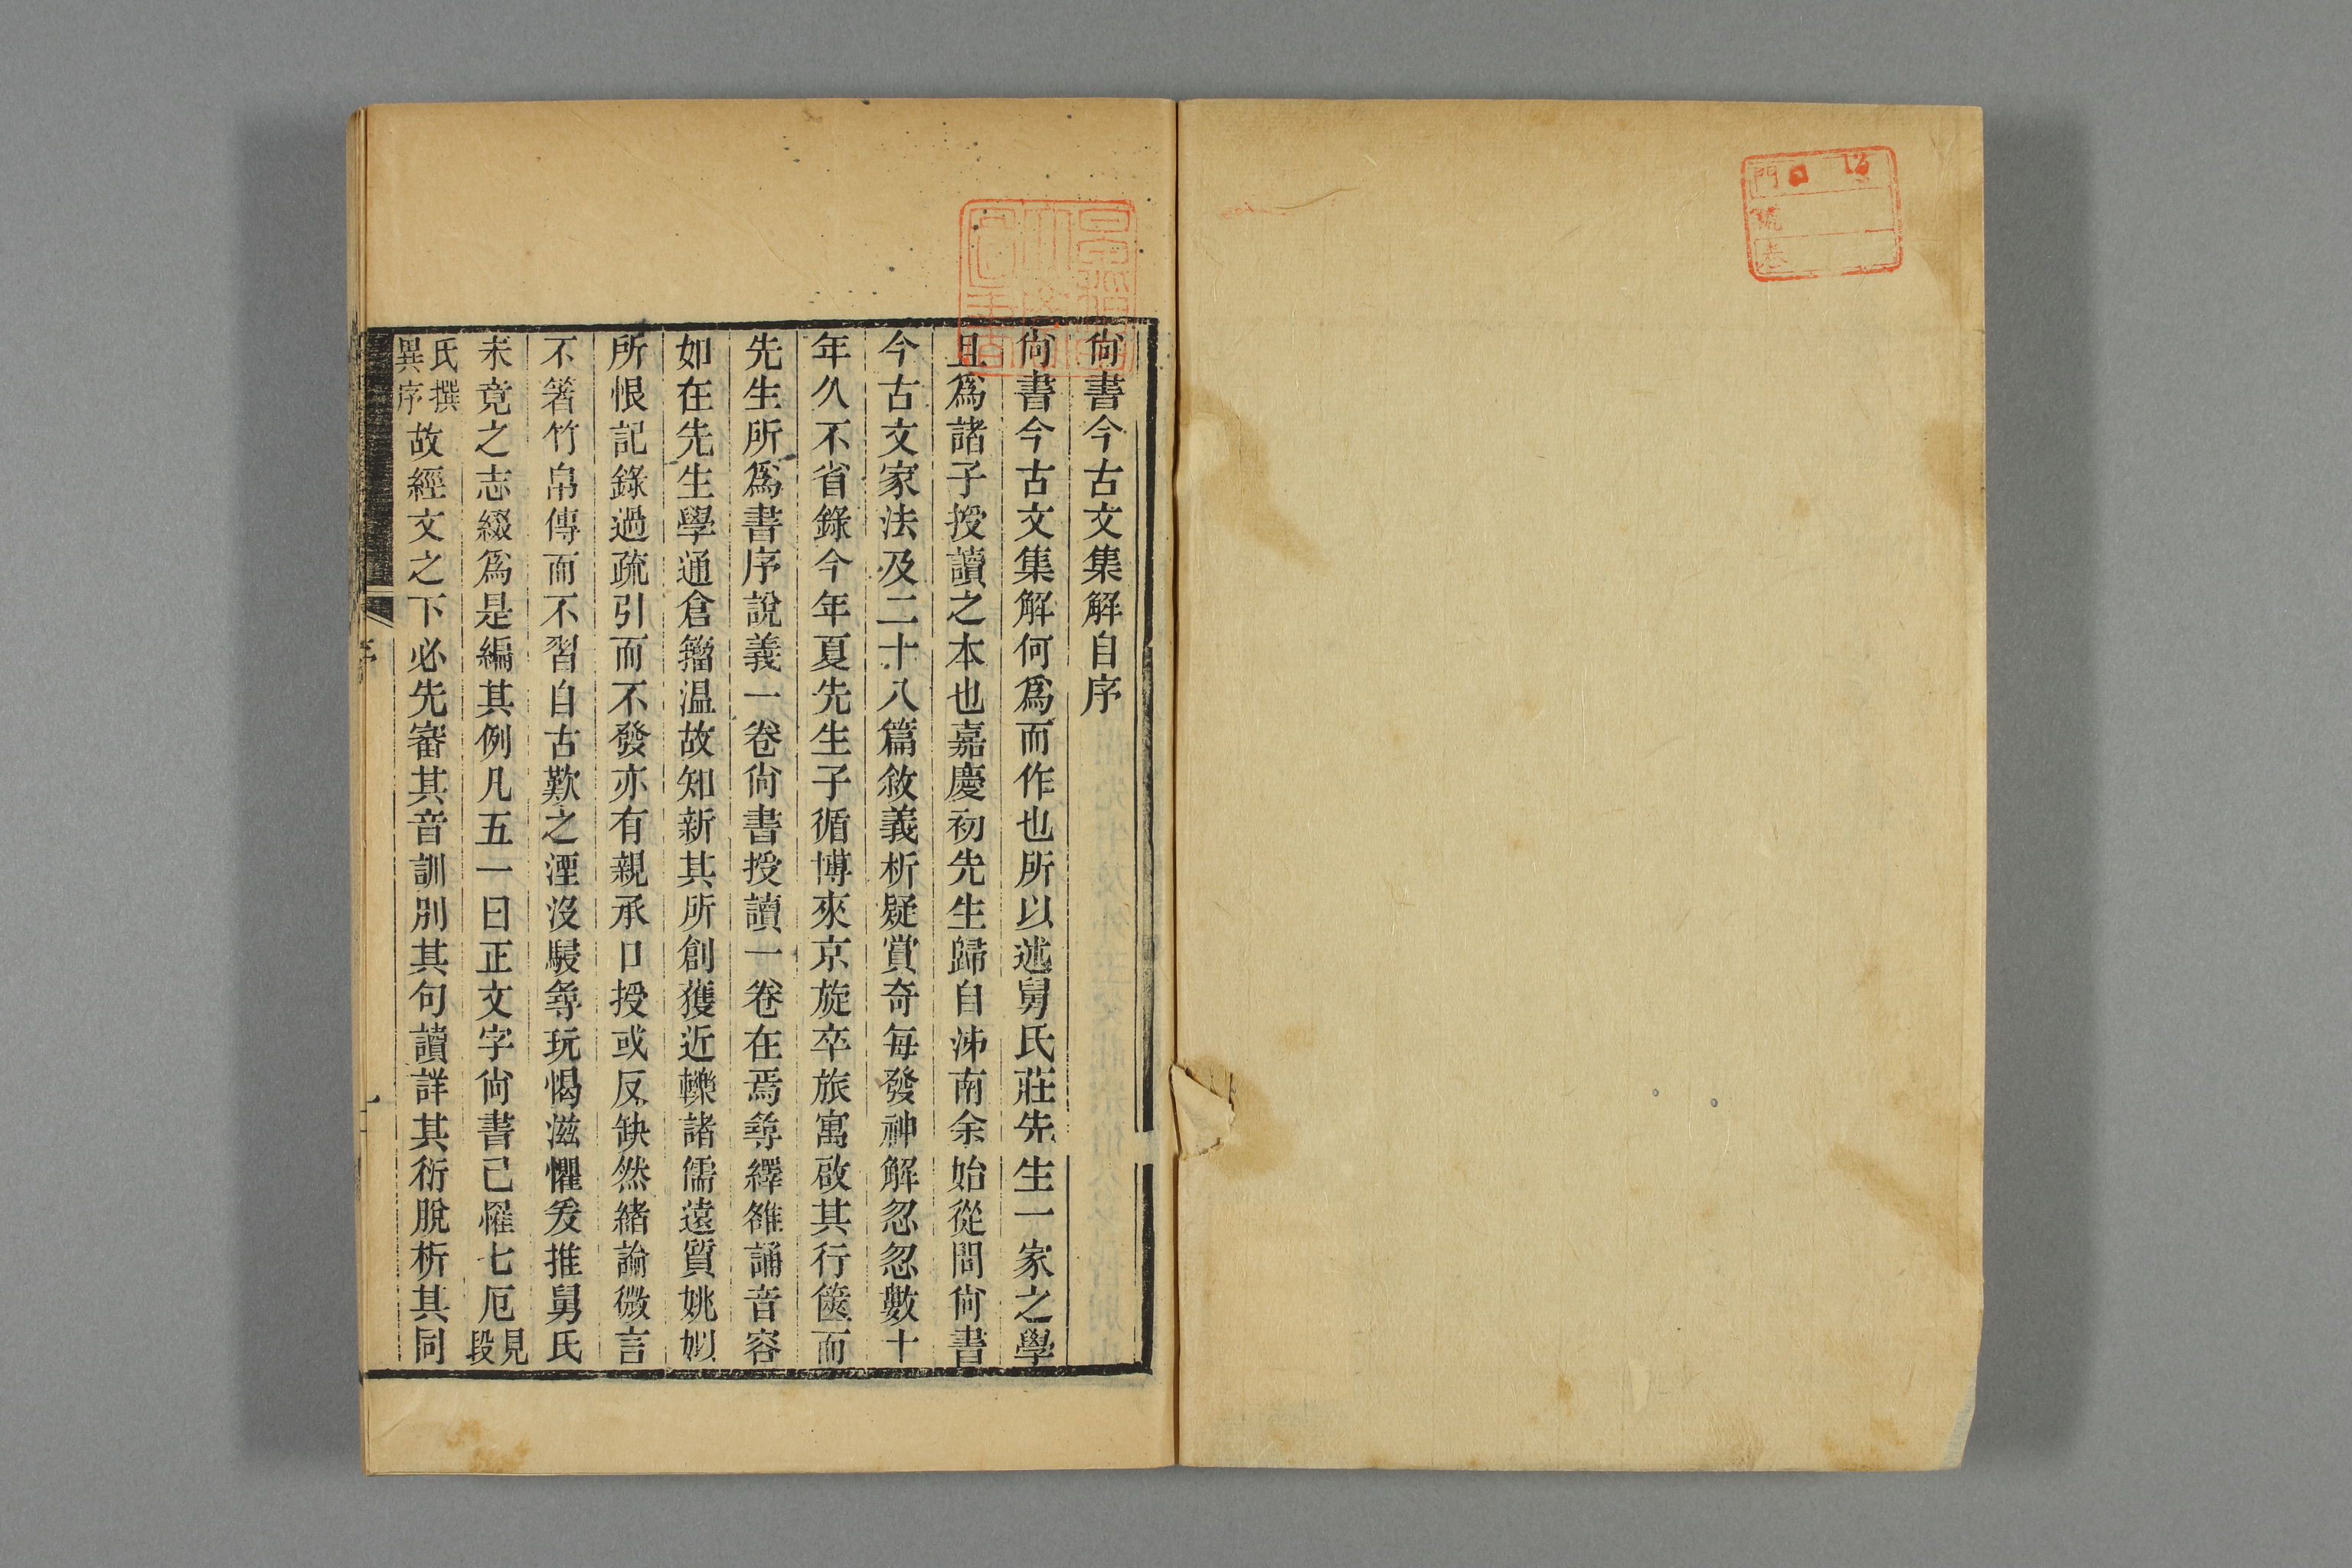 門 12
號
尙書今古文集解自序
尙書今古文集解何爲而作也所以述舅氏莊先生一家之學
且爲諸子授讀之本也嘉慶初先生歸自泲南余始從問尙書
今古文家法及二十八篇敘義析疑賞奇每發神解忽忽數十
年久不省錄今年夏先生子循博來京旋卒旅寓啟其行篋而
先生所爲書序說義一卷尙書授讀一卷在焉尋繹雒誦音容
如在先生學通倉籀温故知新其所創獲近轢諸儒遠質姚姒
所恨記錄過疏引而不發亦有親承口授或反缺然緒論微言
不箸竹帛傳而不習自古歎之湮沒駸尋玩愒滋懼爰推舅氏
未竟之志綴爲是編其例凡五一曰正文字尙書已罹七厄見段
氏撰異序故經文之下必先審其音訓別其句讀詳其衍脫析其同
序
一